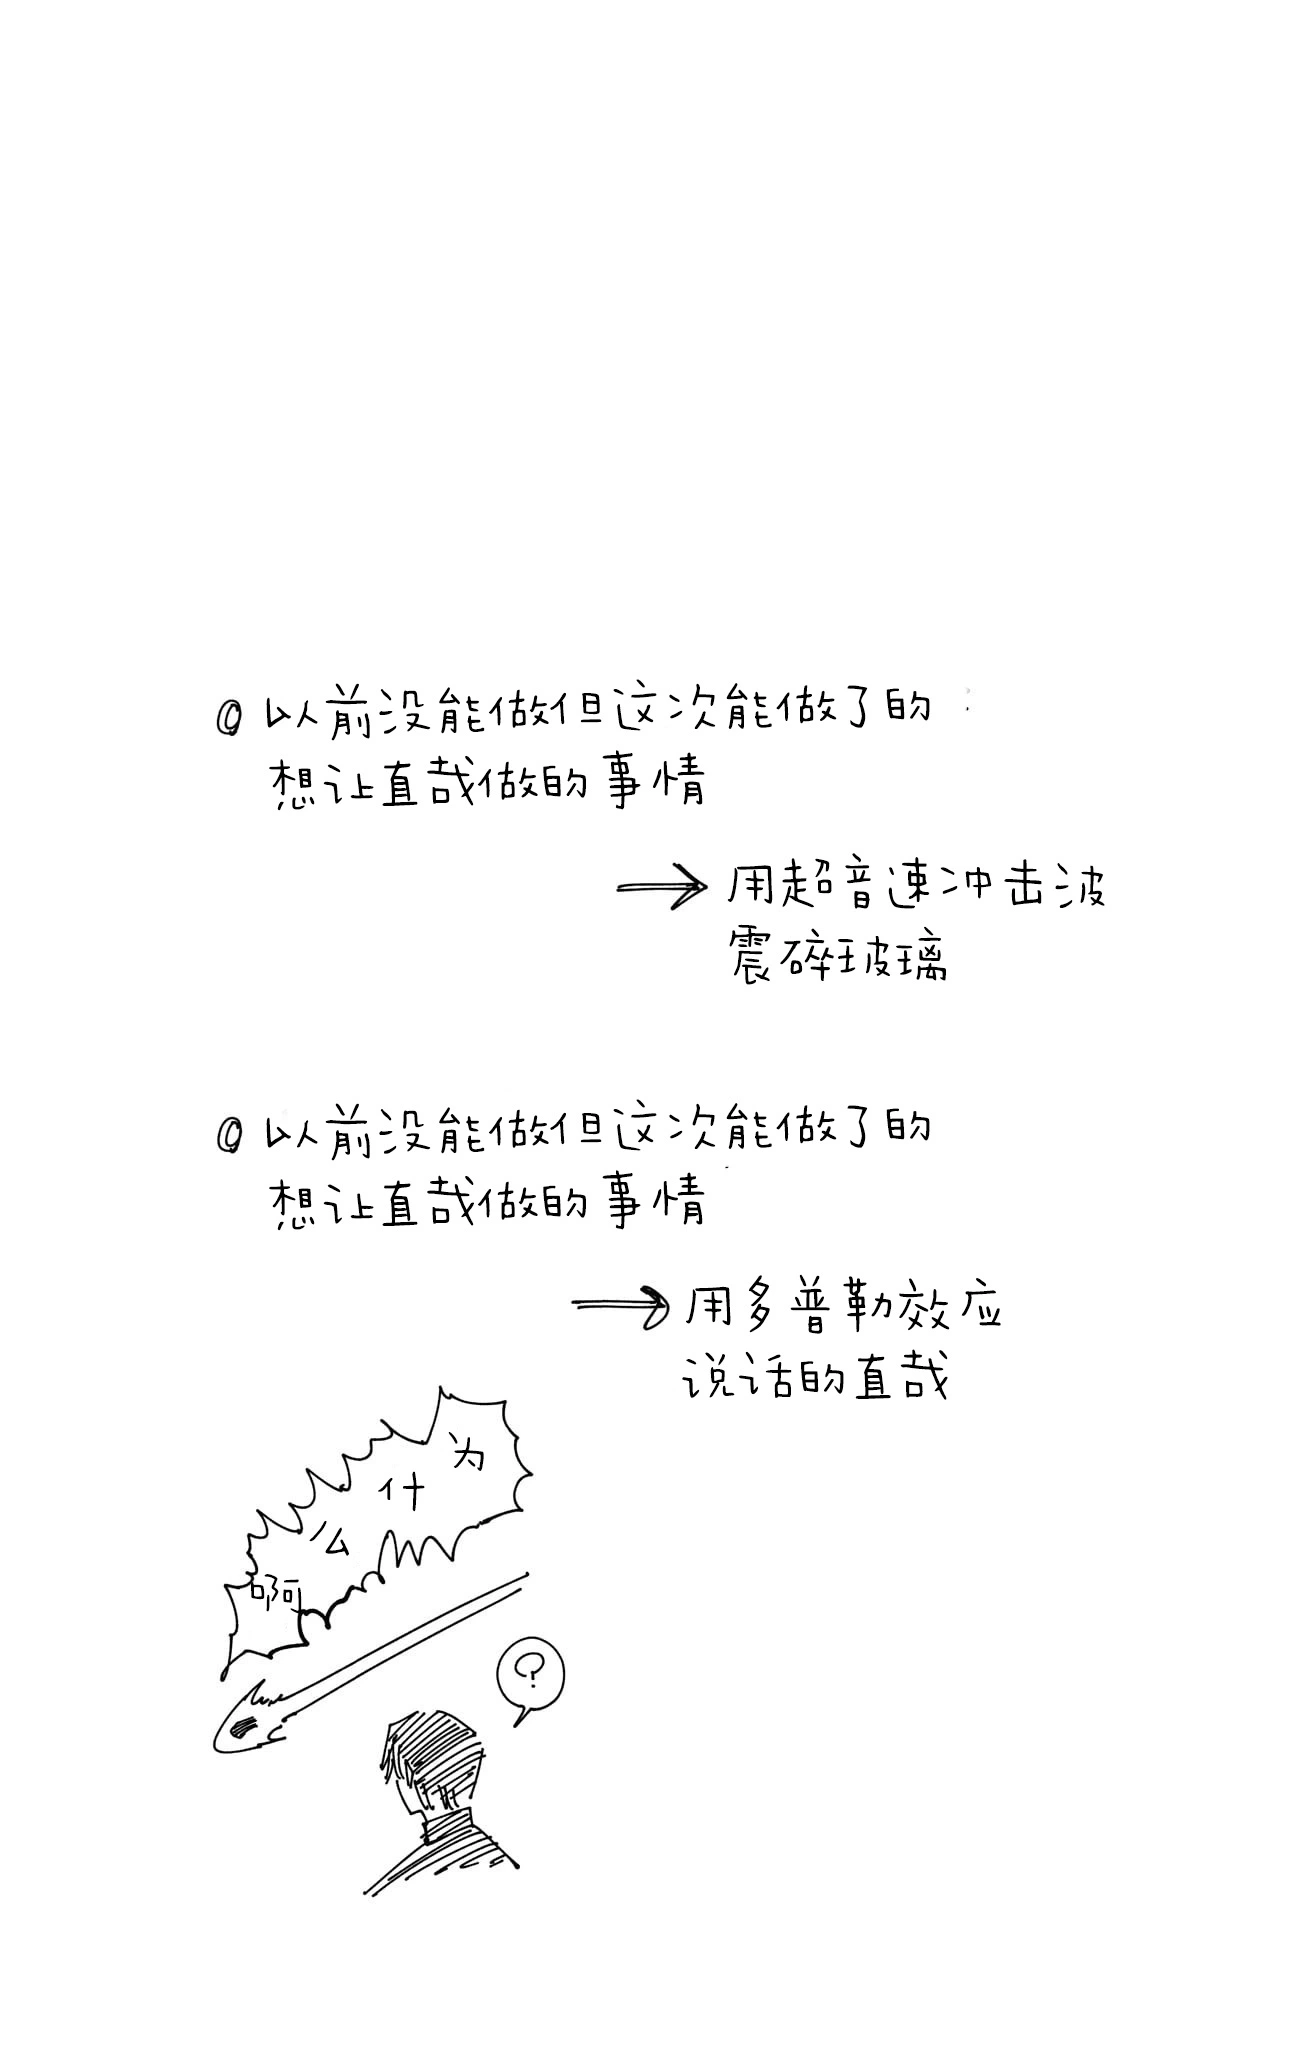 以前没能做但这次能做了的
想让直哉做的事情
→用超音速冲击波
震碎玻璃
以前没能做但这次能做了的
想让直哉做的事情
→用多普勒效应
说话的直哉
为什么啊
?